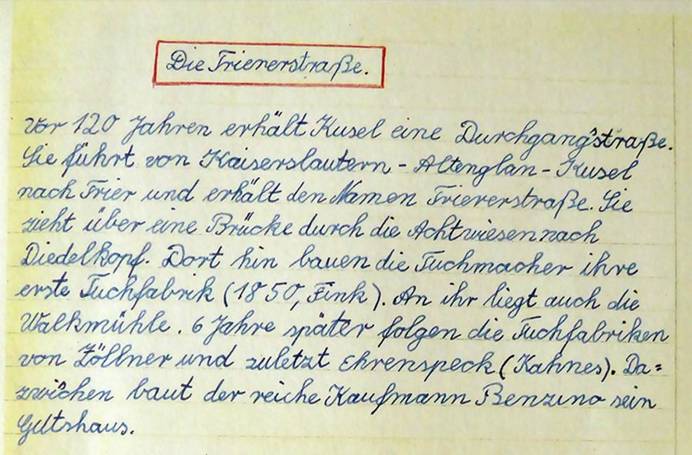 Die Triererstraße.
Vor 120 Jahren erhält Kusel eine Durchgangsstraße.
Sie führt von Kaiserslautern - Altenglan - Kusel
nach Trier und erhält den Namen Triererstraße. Sie
zieht über eine Brücke durch die Achtwiesen nach
Diedelkopf. Dort hin bauen die Tuchmacher ihre
erste Tuchfabrik (1850, Fink). An ihr liegt auch die
Walkmühle. 6 Jahre später folgen die Tuchfabriken
von Zöllner und zuletzt Ehrenspeck (Kahnes). Da=
zwischen baut der reiche Kaufmann Benzino sein
Gutshaus.